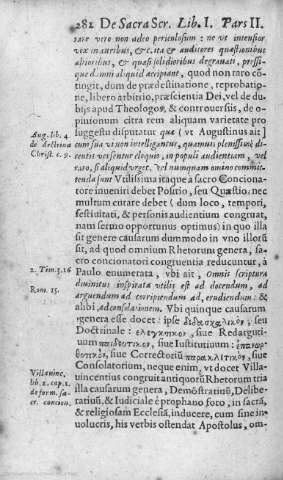 282 De Sacra Scr. Lib. I. Pars II
rare vero non adeo periculosum : ne vt intensior
vox in auribus, & c. ita & auditores quæstionibus
altioribus, & quasi solidioribus degrauati, pressi-
que d.mni aliquid accipiant, quod non raro cō-
tingit, dum de prædestinatione, reprobatio-
ne, libero arbitrio, præscientia Dei, vel de du-
bijs apud Theologos, & controuersiis, de o-
pinionum citra rem aliquam varietate pro
luggestu disputatur quæ ( vt Augustinus ait )
Aug. lib. 4
de doctrina
Christ. c. 9.
cum sua vi non intelligantur, quamuis plenissimè di-
centis versentur eloquio, in populi audientiam, vel
raro, si aliquid vrget, vel nunquam omnino committ-
tenda sunt Vtilissima itaque à sacro Concione-
tore inueniri debet Positio, seu Quæstio: nec
multum curare debet ( dum loco, tempori,
festiuitati, & personis audientium congruat,
nam sermo opportunus optimus) in quo illa
sit genere causarum dummodo in vno illorū
sit, ad quod omnium Rhetorum genera, sa-
cro concionatori congruentia reducuntur, à
2. Tim. 3. 16
Paulo enumerata, vbi ait, Omnis scriptura
diuinitus inspirata vtilis est ad docendum, ad
arguendum ad corripiendum ad, erudiendum : &
Rom. 15.
alibi, ad consolationem. Vbi quinque causarum
genera esse docet : ipse διδασκαλικον, seu
Doctrinale : ελεγκτικον, siue Redarguti-
uum παιδευτικον, siue Institutiuum : ἐπανορ-
θωτικὸν, siue Correctoriū παρακλιτικον, siue
Consolatorium, neque enim, vt docet Villa-
Villauinc.
lib. 2. cap. 1.
de form. sa-
cr. concion.
uincentius congruit antiquorū Rhetorum tria
illa causarum genera, Demōstratiuū, Delibe-
ratiuū, & Iudiciale è prophano foro, in sacrā,
& religiosam Ecclesiā, inducere, cum sine in-
uolucris, his verbis ostendat Apostolus, om-